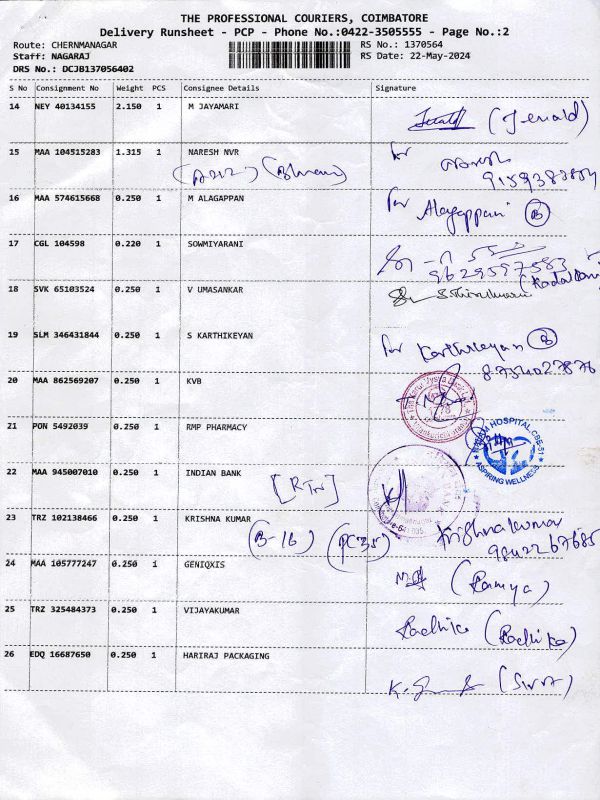 THE PROFESSIONAL COURIERS, COIMBATORE
Delivery Runsheet - PCP - Phone No.:0422-3505555 - Page No.:2
Route: CHERNMANAGAR RS No.: 1370564
Staff: NAGARAJ RS Date: 22-May-2024
DRS No.: DCJB137056402
S No Consignment No Weight PCS Consignee Details Signature
14 NEY 40134155 2.150 1 M JAYAMARI
(Jerald)
15 MAA 104515283 1.315 1 NARESH NVR for
16 MAA 574615668 0.250 1 M ALAGAPPAN for Alagappan B
17 CGL 104598 0.220 1 SOWMIYARANI
9629597583
18 SVK 65103524 0.250 1 V UMASANKAR
19 SLM 346431844 0.250 1 S KARTHIKEYAN for Karthikeyan B
20 MAA 862569207 0.250 1 KVB
21 PON 5492039 0.250 1 RMP PHARMACY HOSPITAL, CBE-51
ASPIRING WELLNESS
22 MAA 945007010 0.250 1 INDIAN BANK
[RTN]
23 TRZ 102138466 0.250 1 KRISHNA KUMAR Krishnakumar
(B-16) (PC35) 9842267685
24 MAA 105777247 0.250 1 GENIQXIS (Ramya)
25 TRZ 325484373 0.250 1 VIJAYAKUMAR Radhika (Radhika)
26 EDQ 16687650 0.250 1 HARIRAJ PACKAGING (SIVA)